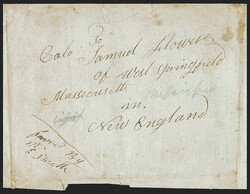 To
Colo Samuel Flower
of West Springfield
Massacusetts
in
New England
favord By
Mr